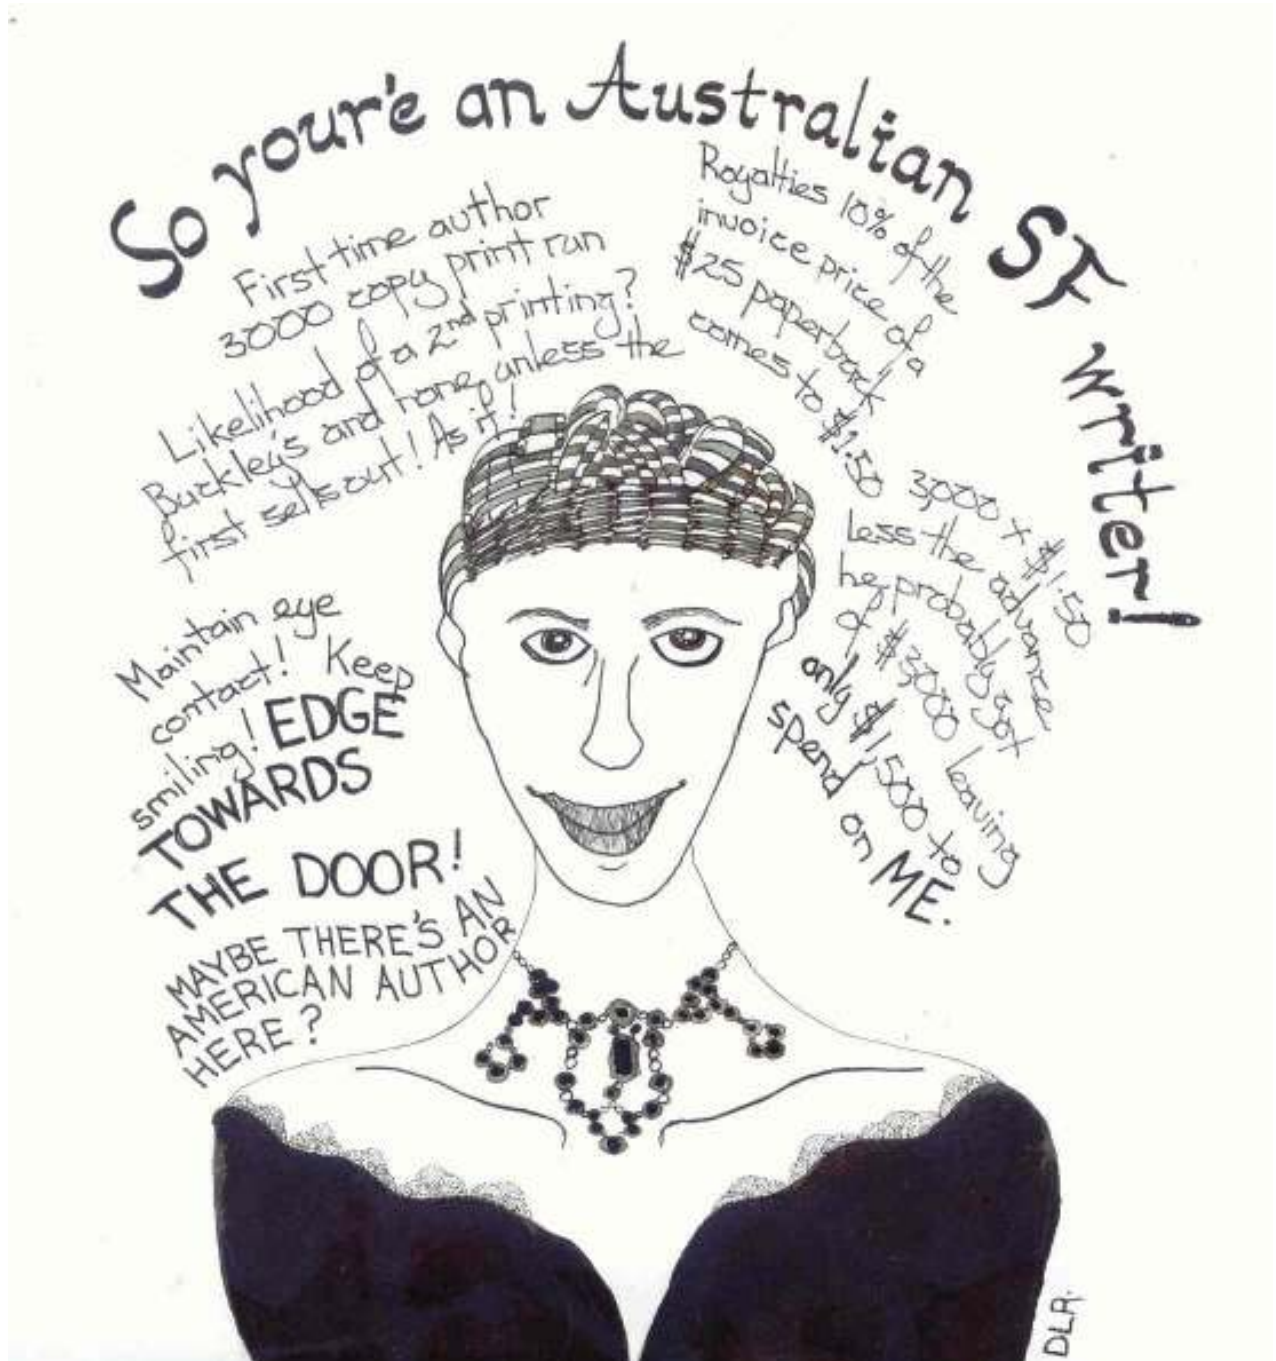 So your'e an Australian SF writer!
First time author
3000 copy print run
Likelihood of a 2nd printing?
Buckley's and none, unless the
first sells out! As if!
Royalties 10% of the
invoice price of a
$25 paperback
comes to $1.50
3,000 x $1.50
less the advance
he probably got
of $3000 leaving
only $1,500 to
spend on ME.
Maintain eye
contact! Keep
smiling! EDGE
TOWARDS
THE DOOR!
MAYBE THERE'S AN
AMERICAN AUTHOR
HERE?
DLR.